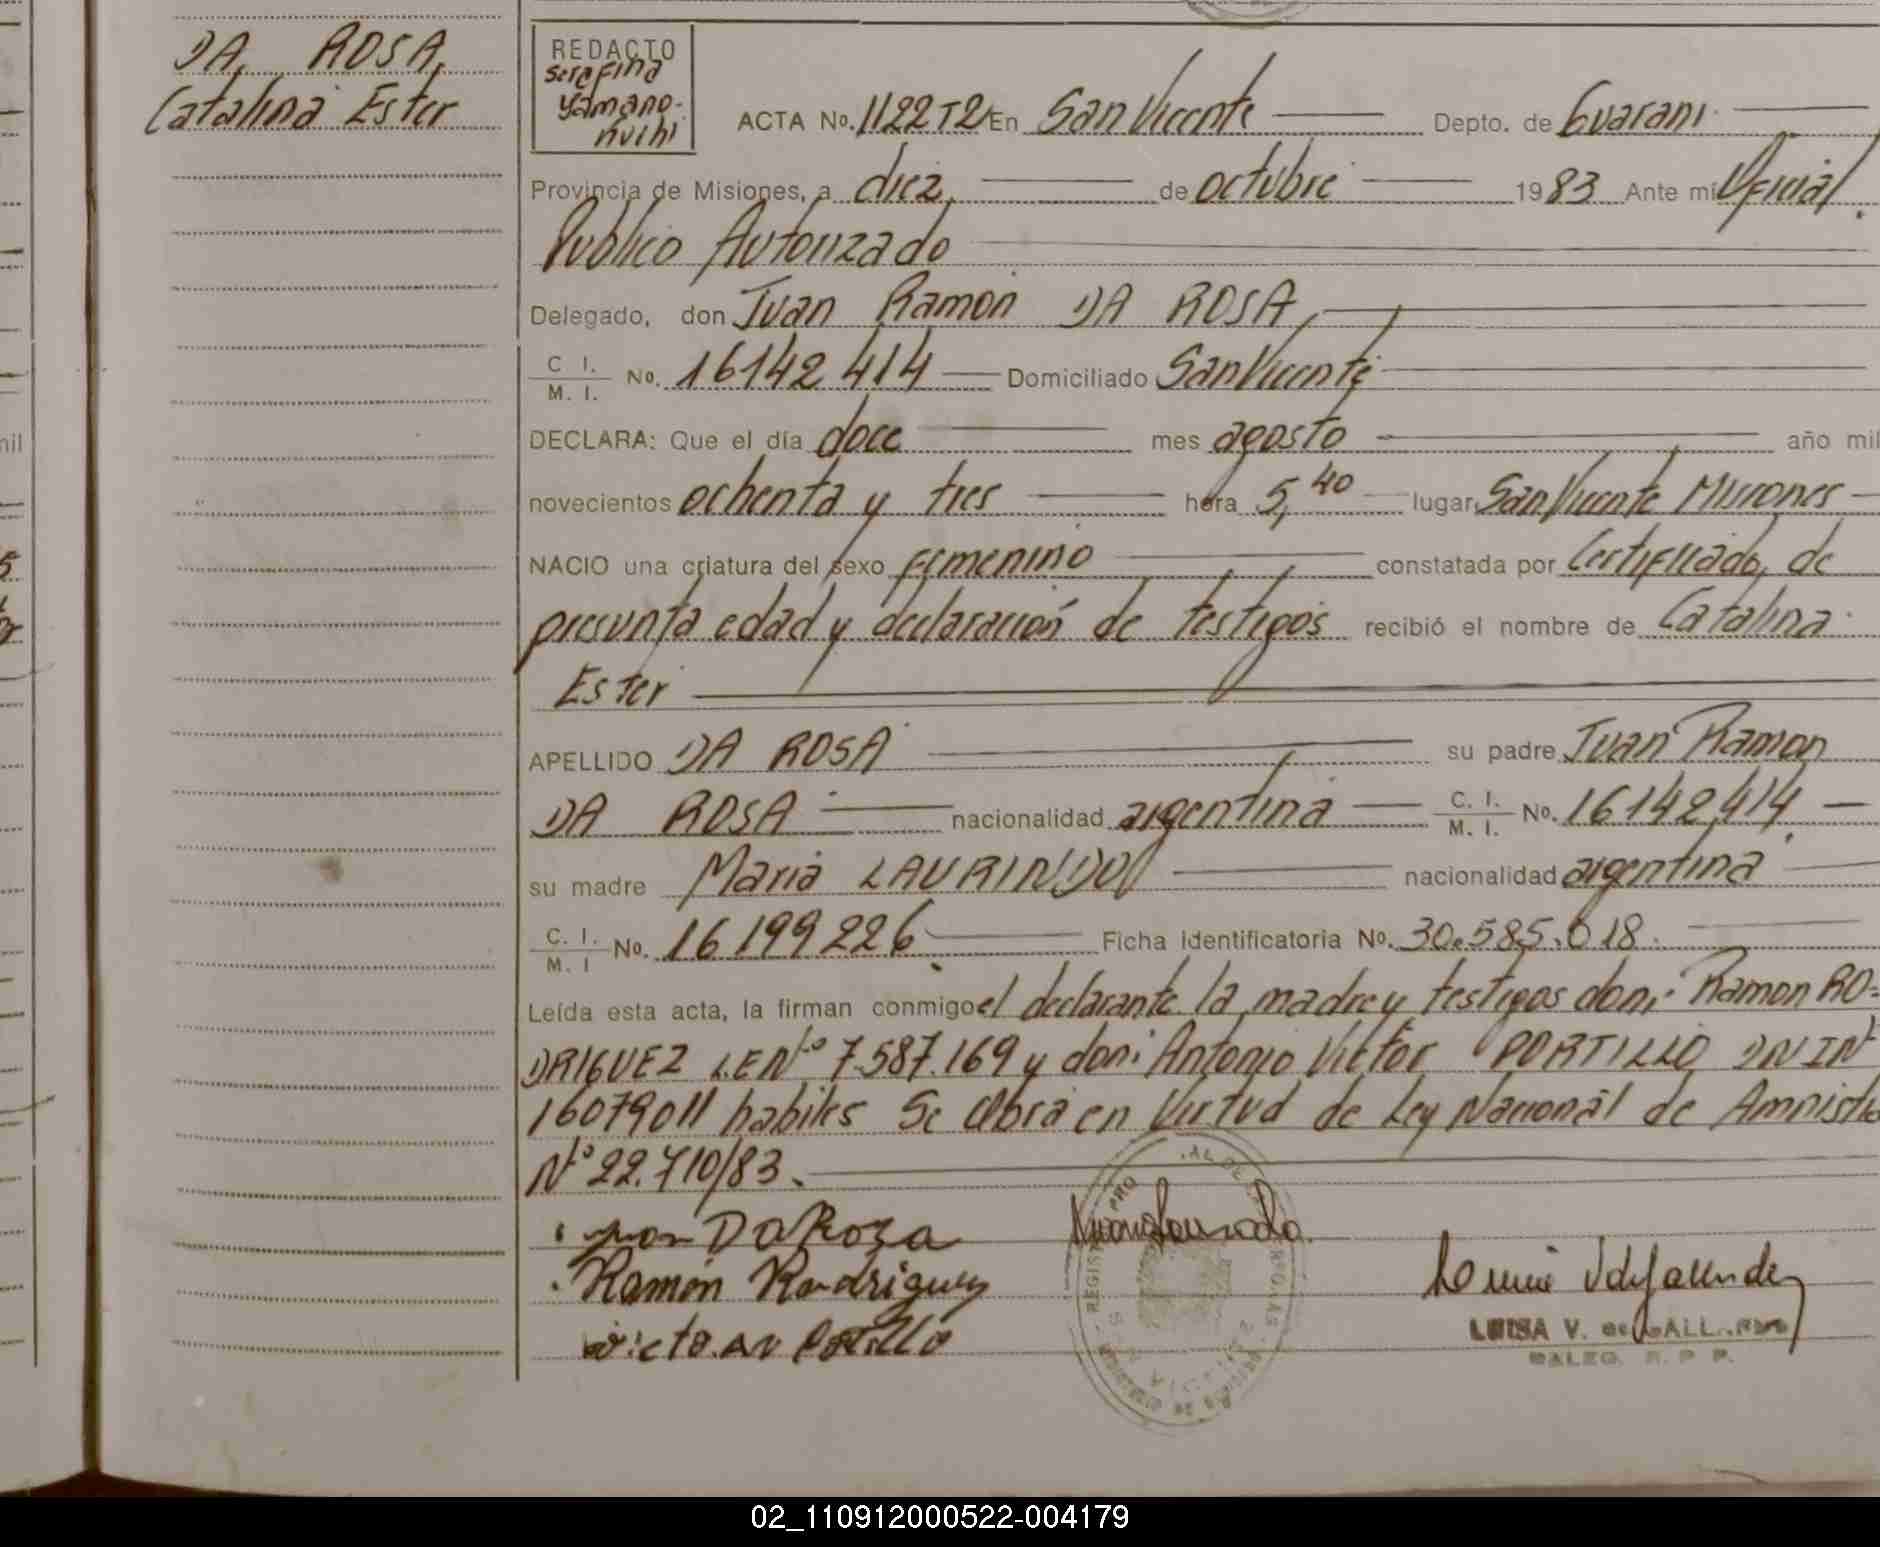 DA ROSA,
Catalina Ester
REDACTO
Serefina
Yamano-
nuihi
ACTA No. 1122 T2 En San Vicente Depto. de Guarani
Provincia de Misiones, a diez de octubre 1983 Ante mí Oficial
Publico Autorizado
Delegado, don Juan Ramon DA ROSA,
C I.
M. I. No. 16142414 Domiciliado San Vicente
DECLARA: Que el día doce mes agosto año mil
novecientos ochenta y tres hora 5,40 lugar San Vicente Misiones
NACIO una criatura del sexo femenino constatada por Certificado, de
presunta edad y declaración de testigos recibió el nombre de Catalina
Ester
APELLIDO DA ROSA su padre Juan Ramon
DA ROSA nacionalidad argentina C. I.
M. I. No. 16142414.
su madre Maria LAURINDO nacionalidad argentina
C. I.
M. I No. 16199226. Ficha Identificatoria No. 30.585.018.
Leída esta acta, la firman conmigo el declarante la madre y testigos don: Ramon RO=
DRIGUEZ L.E Nº 7.587.169 y don: Antonio Victor PORTILLO DNI Nº
16079011 habiles Se labra en Virtud de Ley Nacional de Amnistia
Nº 22.710/83.
Juan Da Roza
Ramón Rodriguez
LUISA V. de GALL
DALEG. R. P P.
02_110912000522-004179